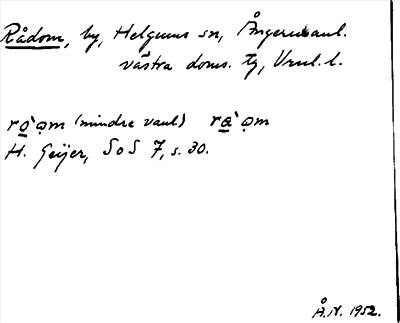 Rådom, by, Helgums sn, Ångermanl.
västra doms. tg, Vnrl. l.
ro̱`o̤m (mindre vanl) ra̱`o̤m
H. Geijer, SoS 7, s. 30.
Å.N. 1952.